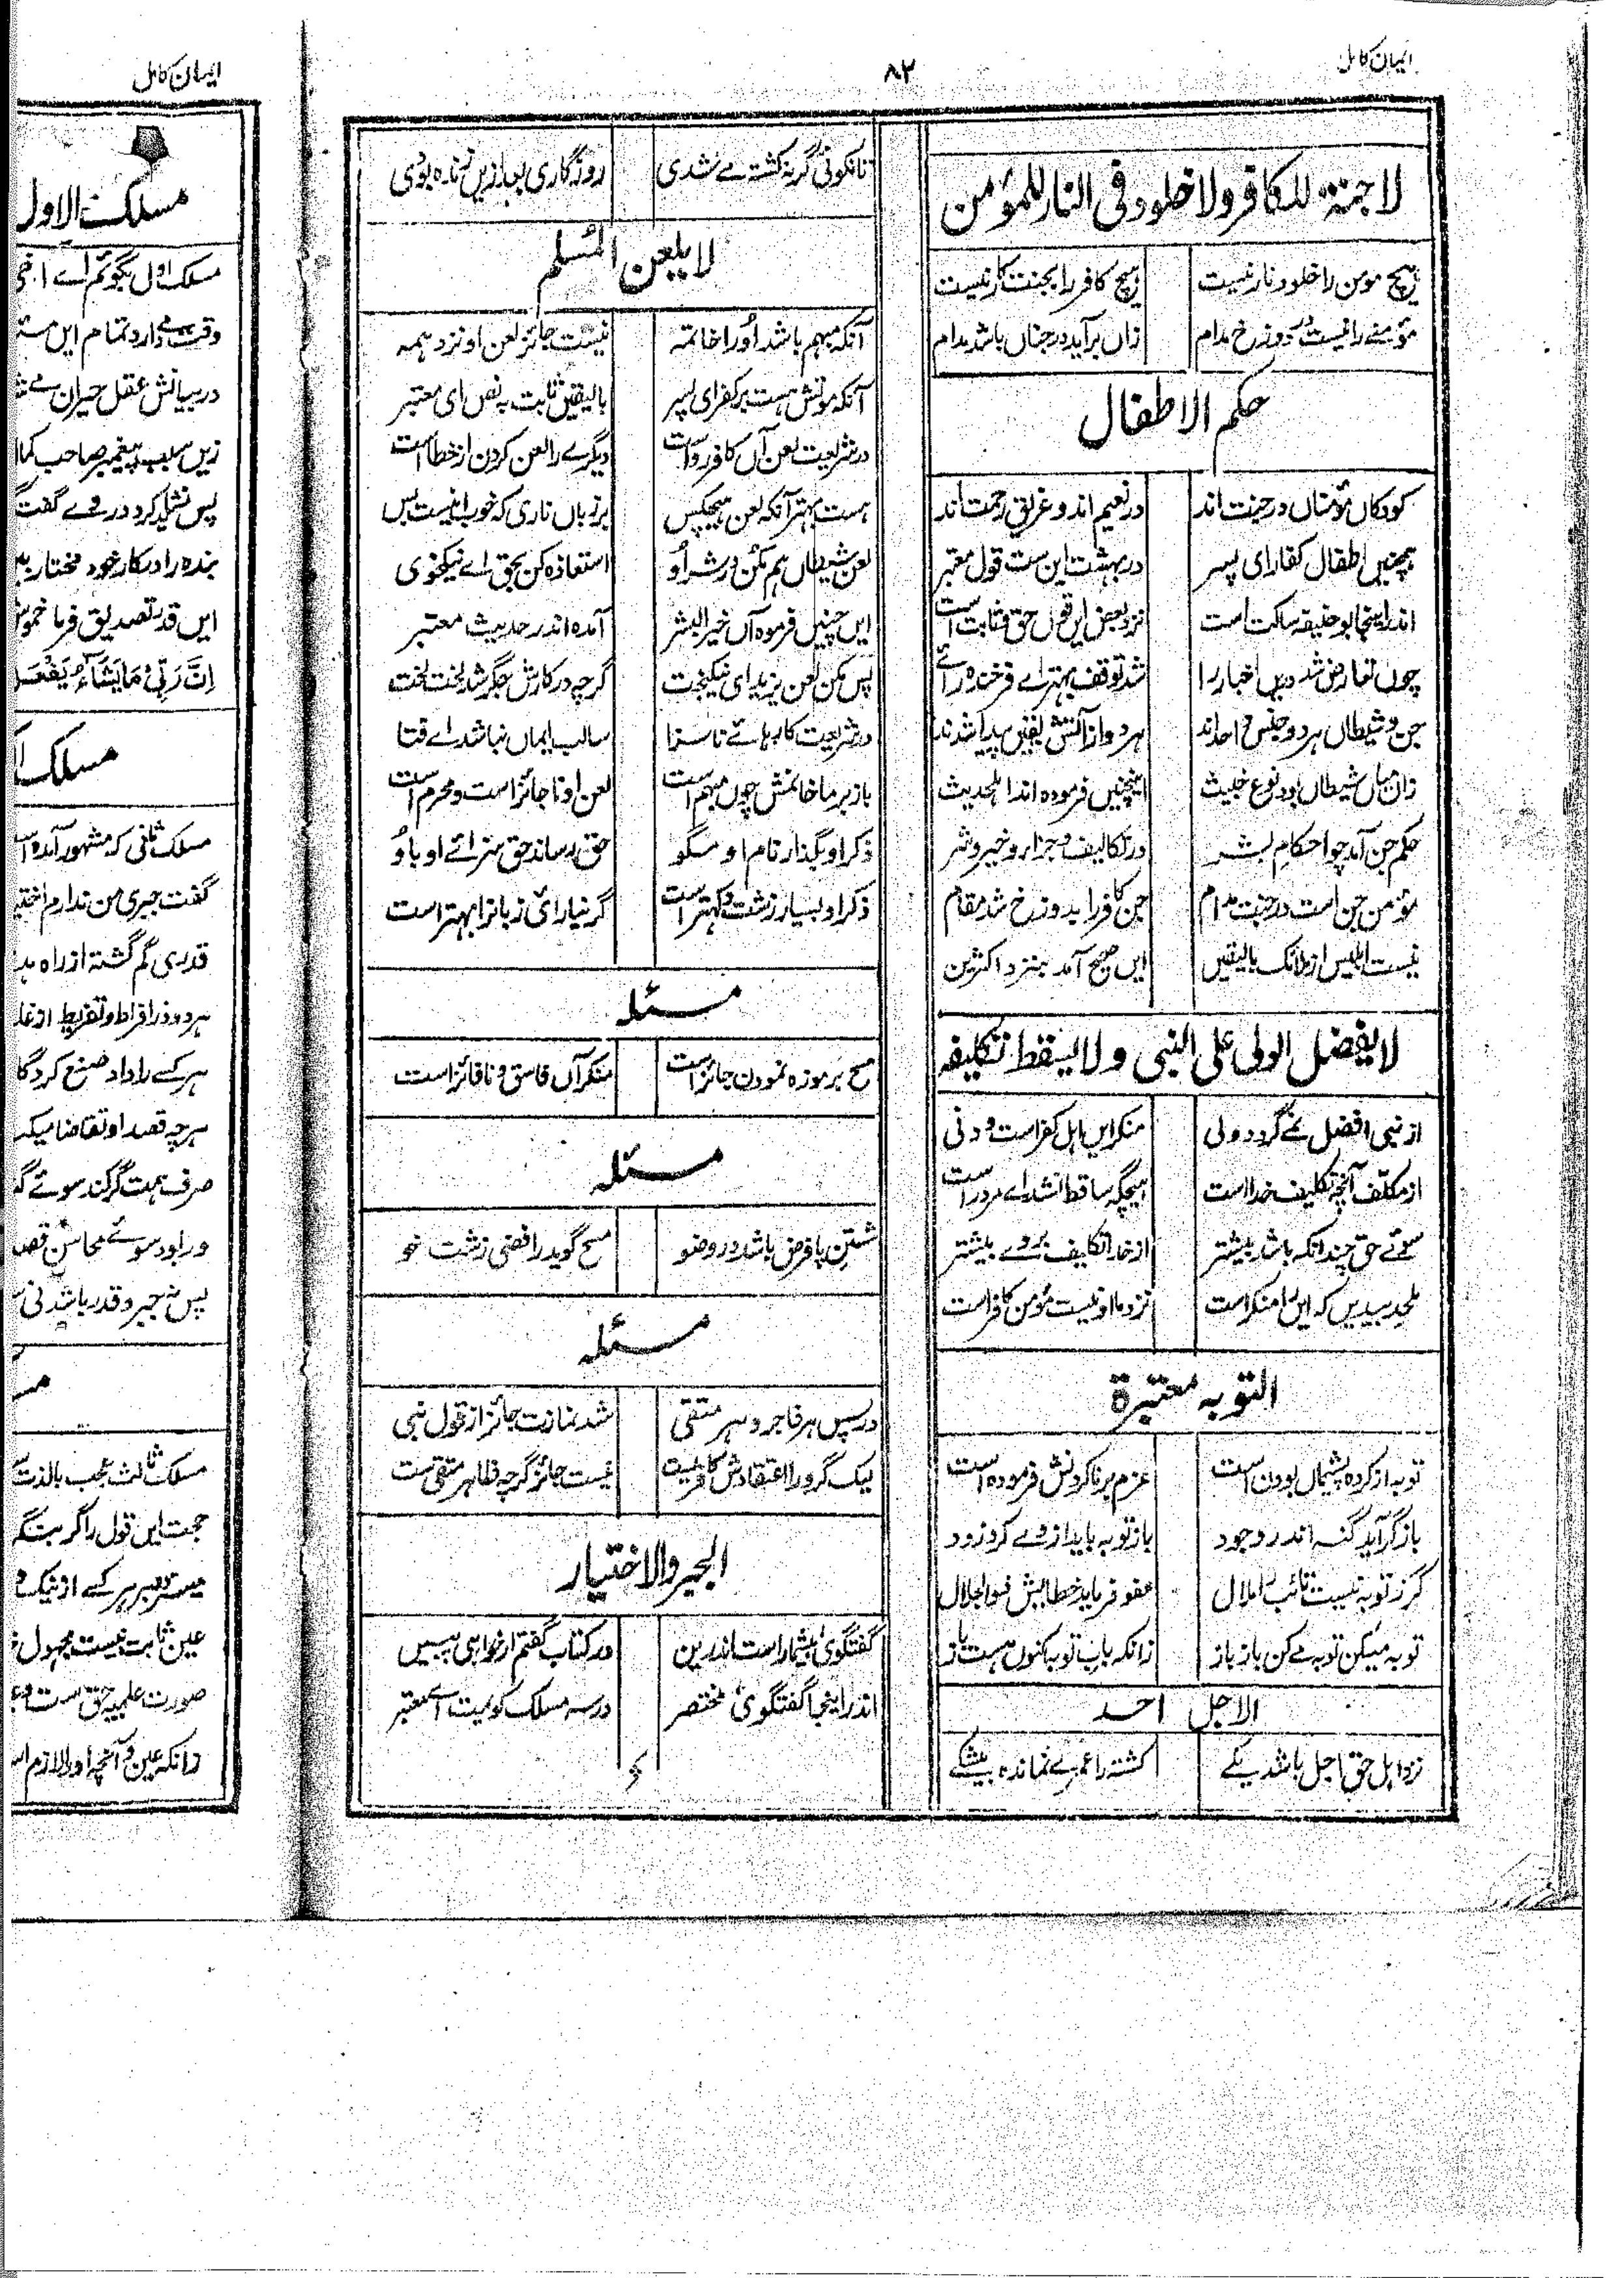 ایمان کامل
۸۲
لا جنۃ للکافر ولا خلود فی النار للمؤمن
ہیچ مومن را خلود نار نیست ہیچ کافر را بجنت کار نیست
مؤمنے را نیست در دوزخ مدام زاں برآید در جناں باشد مدام
حکم الاطفال
کودکاں مؤمناں در جنت اند در نعیم اند و غریق رحمت اند
ہمچنیں اطفال کفار ای پسر در بہشت این ست قول معتبر
اندر اینجا بو حنیفہ ساکت است نزد بعض ایں قول حق و ثابت است
چوں تعارض شد دریں اخبار را شد توقف بہتر اے فرخندہ رائے
جن و شیطاں ہر دو جنس واحد اند ہر دو از آتش یقیں پیدا شدند
زاں میاں شیطاں بود نوع خبیث اینچنیں فرمودہ اند اہل حدیث
حکم جن آمد چو احکام بشر در تکالیف و جزا و خیر و شر
مؤمن جن است در جنت مدام جن کافر را بدوزخ شد مقام
نیست ابلیس از ملائک بالیقیں ایں صحیح آمد بنزد اکثرین
لا یفضل الولی علی النبی ولا یسقط تکلیفہ
از نبی افضل نمے گردد ولی منکر ایں اہل کفر است و دنی
از مکلّف آنچہ تکلیف خدا است ہیچگہ ساقط نشد اے مرد راست
سوئے حق چندانکہ باشد بیشتر از خدا تکلیف بروے بیشتر
ملحد بیدیں کہ ایں را منکر است نزد ما او نیست مؤمن کافر است
التوبہ معتبرۃ
توبہ از کردہ پشیماں بودن است عزم بر ناکردنش فرمودہ است
باز گر آید گنہ اندر وجود باز توبہ باید از وے کرد زود
گر ز توبہ نیست تائب را ملال عفو فرماید خطایش ذو الجلال
توبہ میکن توبہ مے کن باز باز زانکہ باب توبہ اکنوں ہست باز
الاجل احد
نزد اہل حق اجل باشد یکے کشتہ را عمرے نماندہ بیشکے
تا نگوئی گر نہ کشتہ مے شدی روزگاری بعد ازیں زندہ بودی
لا یلعن المسلم
آنکہ مبہم باشد او را خاتمہ نیست جائز لعن او نزد ہمہ
آنکہ موتش ہست بر کفر ای پسر بالیقیں ثابت بہ نص ای معتبر
در شریعت لعن آں کافر رواست دیگرے را لعن کردن از خطا است
ہست بہتر آنکہ لعن ہیچکس بر زباں ناری کہ خوب این است بس
لعن شیطاں ہم مکن در شر او استعاذہ کن بحق اے نیکخوی
ایں چنیں فرمودہ آں خیر البشر آمدہ اندر حدیث معتبر
پس مکن لعن یزید ای نیکبخت گرچہ در کارش جگر شد لخت لخت
در شریعت کارہائے ناسزا سالب ایماں نباشد اے فتا
باز بر ما خاتمش چوں مبہم است لعن او ناجائز است و محرم است
ذکر او بگذار نام او مگو حق رساند حق سزائے او باو
ذکر او بسیار زشت و کہتر است گر نیارائی زباں را بہتر است
مسئلہ
مسح بر موزہ نمودن جائز است منکر آں فاسق و نافائز است
مسئلہ
شستن پا فرض باشد در وضو مسح گوید رافضی زشت خو
مسئلہ
در پس ہر فاجر و ہر متقی شد نمازت جائز از قول نبی
لیک گر ورا اعتقادش کافریست نیست جائز گرچہ ظاہر متقی ست
الجبر والاختیار
گفتگوی بیشمار است اندرین در کتاب گفتم ار خواہی ببیں
اندر اینجا گفتگوی مختصر در سہ مسلک گویمت اے معتبر
ایمان کامل
مسلک الاول
مسلک اول بگویم اے اخی
وقت مے دارد تمام ایں
در بیانش عقل حیراں مے
زیں سبب پیغمبر صاحب
پس نشاید کرد در وے گفت
بندہ را در کار خود مختار
ایں قدر تصدیق فرما
اِنَّ رَبِّیْ مَا یَشَاءُ یَفْعَل
مسلک
مسلک ثانی کہ مشہور آمدہ
گفت جبری من ندارم
قدری گم گشتہ از راہ
ہر دو در افراط و تفریط از
ہر کسے را داد صنع
ہرچہ قصد او تقاضا
صرف ہمت گر کند سوئے
ور بود سوئے محاسن
پس نہ جبر و قدر باشد نی
مسلک ثالث عجب بالذت
حجت ایں قول را گر
عین ثابت نیست مجہول
صورت علمیہ حق ست
زانکہ عین و آنچہ او را لازم